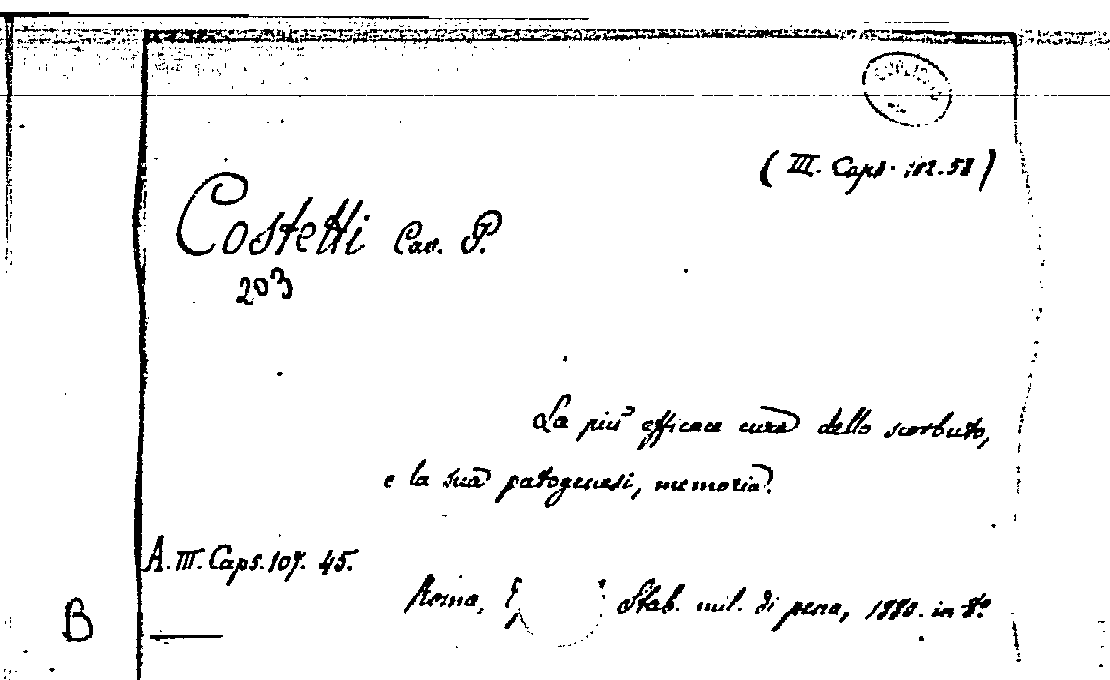 (III. Caps. 102.58)
Costetti Cav. P.
203
La più efficace cura dello scorbuto,
e la sua patogenesi, memoria.
A. III. Caps. 107. 45.
Roma, Stab. mil. di pena, 1880. in 8°
B